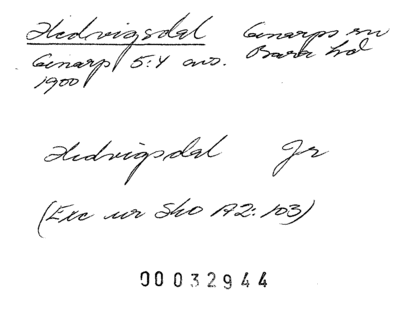 Hedvigsdal Genarps sn
Genarp 5:4 avs. Bara hd
1900
Hedvigsdal Gr
(Exc ur Sko A2:103)
00032944